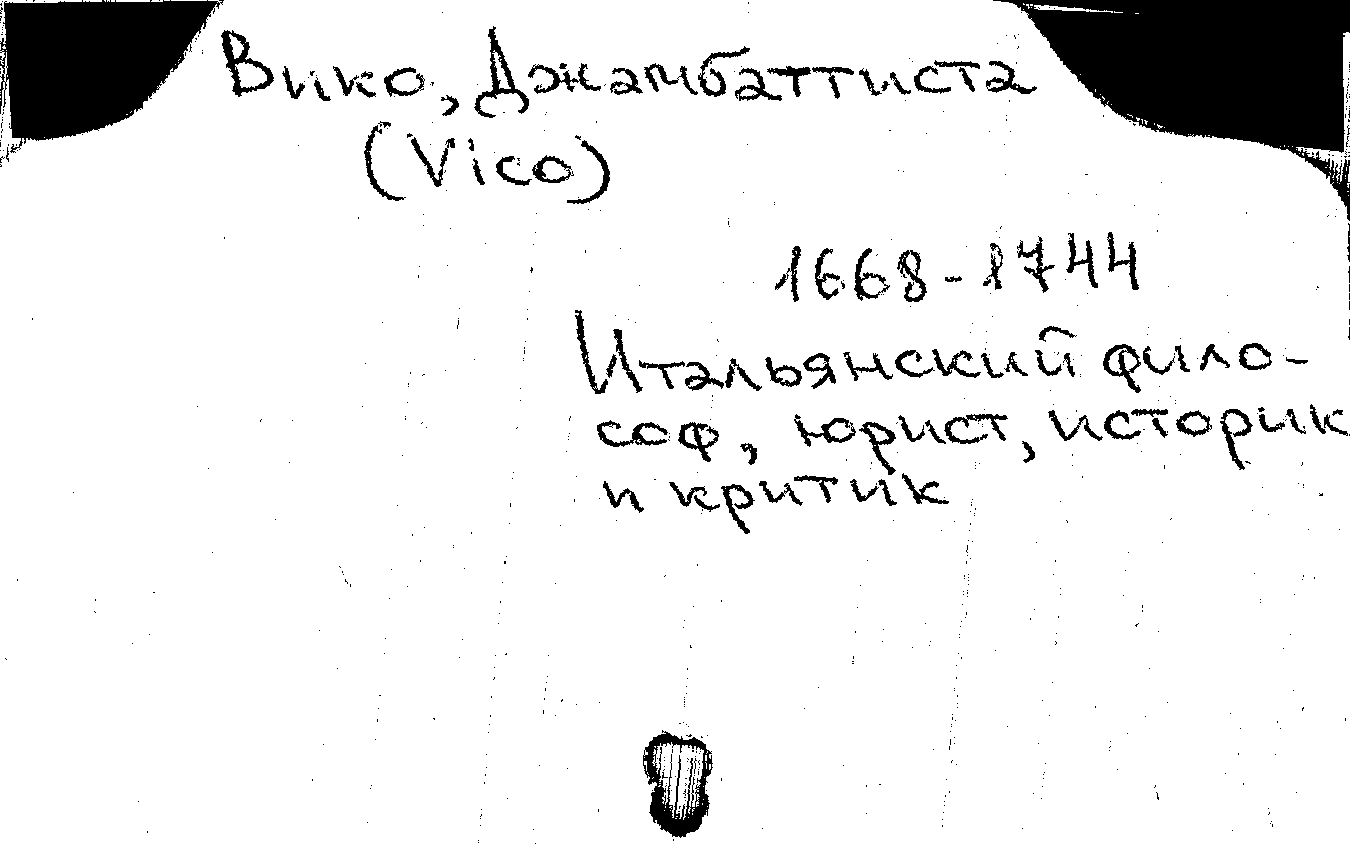 Вико, Джамбаттиста
(Vico)
1668-1744
Итальянский фило-
соф, юрист, историк
и критик